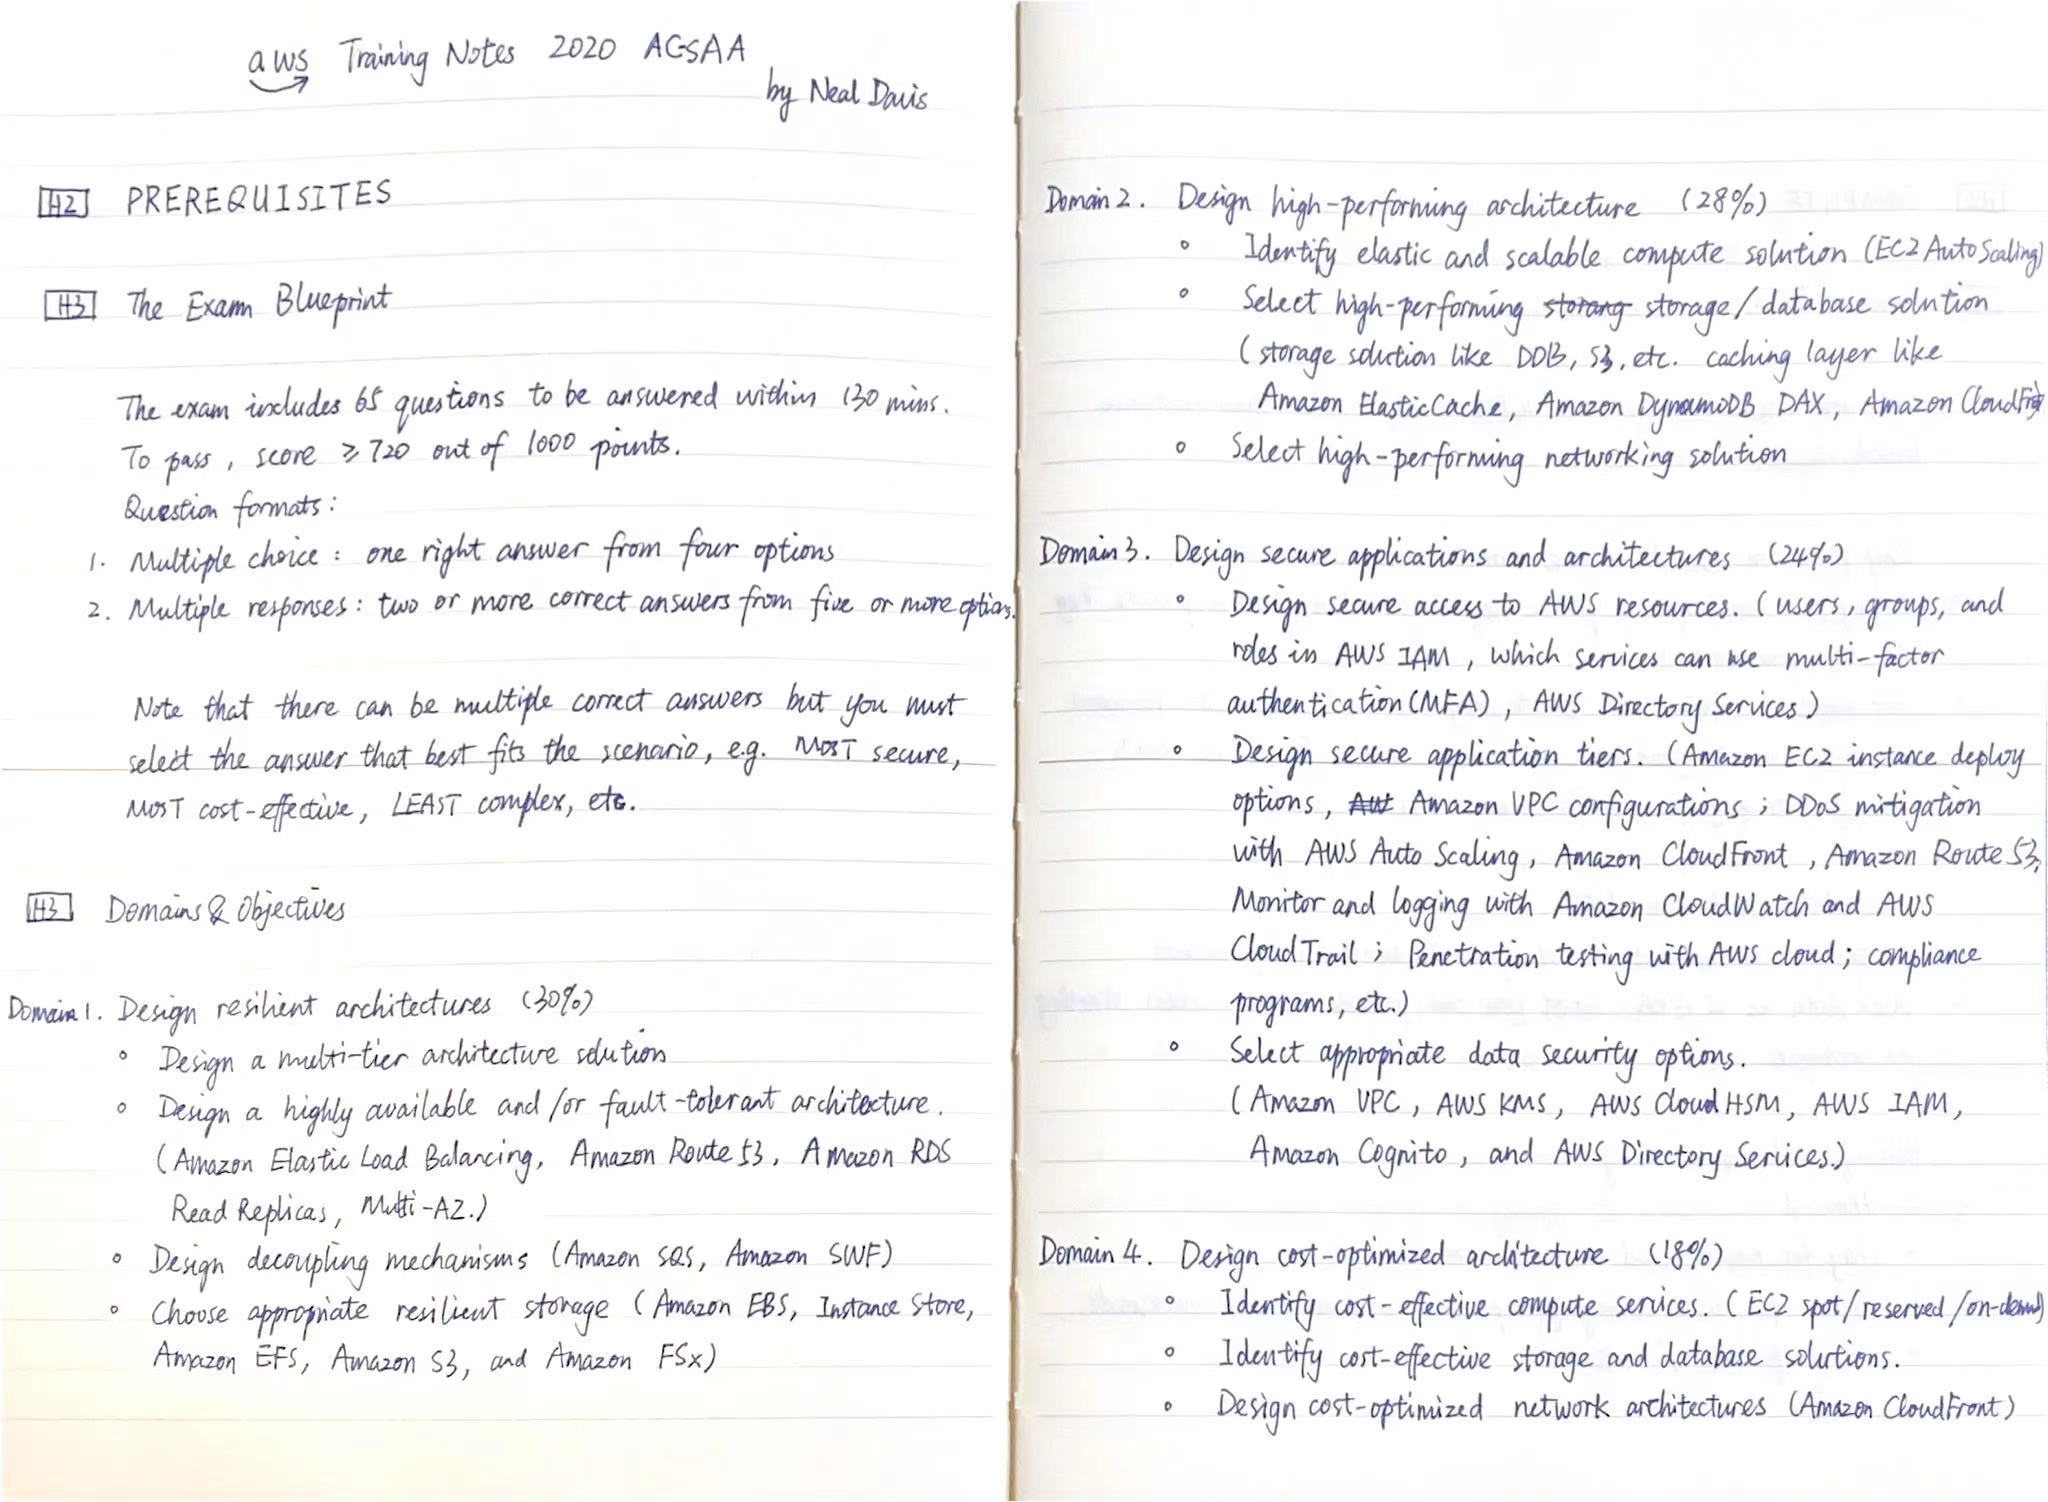 aws Training Notes 2020 ACSAA
by Neal Davis
H2 PREREQUISITES
H3 The Exam Blueprint
The exam includes 65 questions to be answered within 130 mins.
To pass, score ≥ 720 out of 1000 points.
Question formats:
1. Multiple choice: one right answer from four options
2. Multiple responses: two or more correct answers from five or more options.
Note that there can be multiple correct answers but you must
select the answer that best fits the scenario, e.g. MOST secure,
MOST cost-effective, LEAST complex, etc.
H3 Domains & Objectives
Domain 1. Design resilient architectures (30%)
° Design a multi-tier architecture solution
° Design a highly available and/or fault-tolerant architecture.
(Amazon Elastic Load Balancing, Amazon Route 53, Amazon RDS
Read Replicas, Multi-AZ.)
° Design decoupling mechanisms (Amazon SQS, Amazon SWF)
° Choose appropriate resilient storage (Amazon EBS, Instance Store,
Amazon EFS, Amazon S3, and Amazon FSx)
Domain 2. Design high-performing architecture (28%)
° Identify elastic and scalable compute solution (EC2 Auto Scaling)
° Select high-performing storang storage/database solution
(storage solution like DDB, S3, etc. caching layer like
Amazon ElasticCache, Amazon DynamoDB DAX, Amazon CloudFront
° Select high-performing networking solution
Domain 3. Design secure applications and architectures (24%)
° Design secure access to AWS resources. (users, groups, and
roles in AWS IAM, which services can use multi-factor
authentication (MFA), AWS Directory Services)
° Design secure application tiers. (Amazon EC2 instance deploy
options, AW Amazon VPC configurations; DDoS mitigation
with AWS Auto Scaling, Amazon CloudFront, Amazon Route 53;
Monitor and logging with Amazon CloudWatch and AWS
CloudTrail; Penetration testing with AWS cloud; compliance
programs, etc.)
° Select appropriate data security options.
(Amazon VPC, AWS KMS, AWS CloudHSM, AWS IAM,
Amazon Cognito, and AWS Directory Services.)
Domain 4. Design cost-optimized architecture (18%)
° Identify cost-effective compute services. (EC2 spot/reserved/on-demand)
° Identify cost-effective storage and database solutions.
° Design cost-optimized network architectures (Amazon CloudFront)